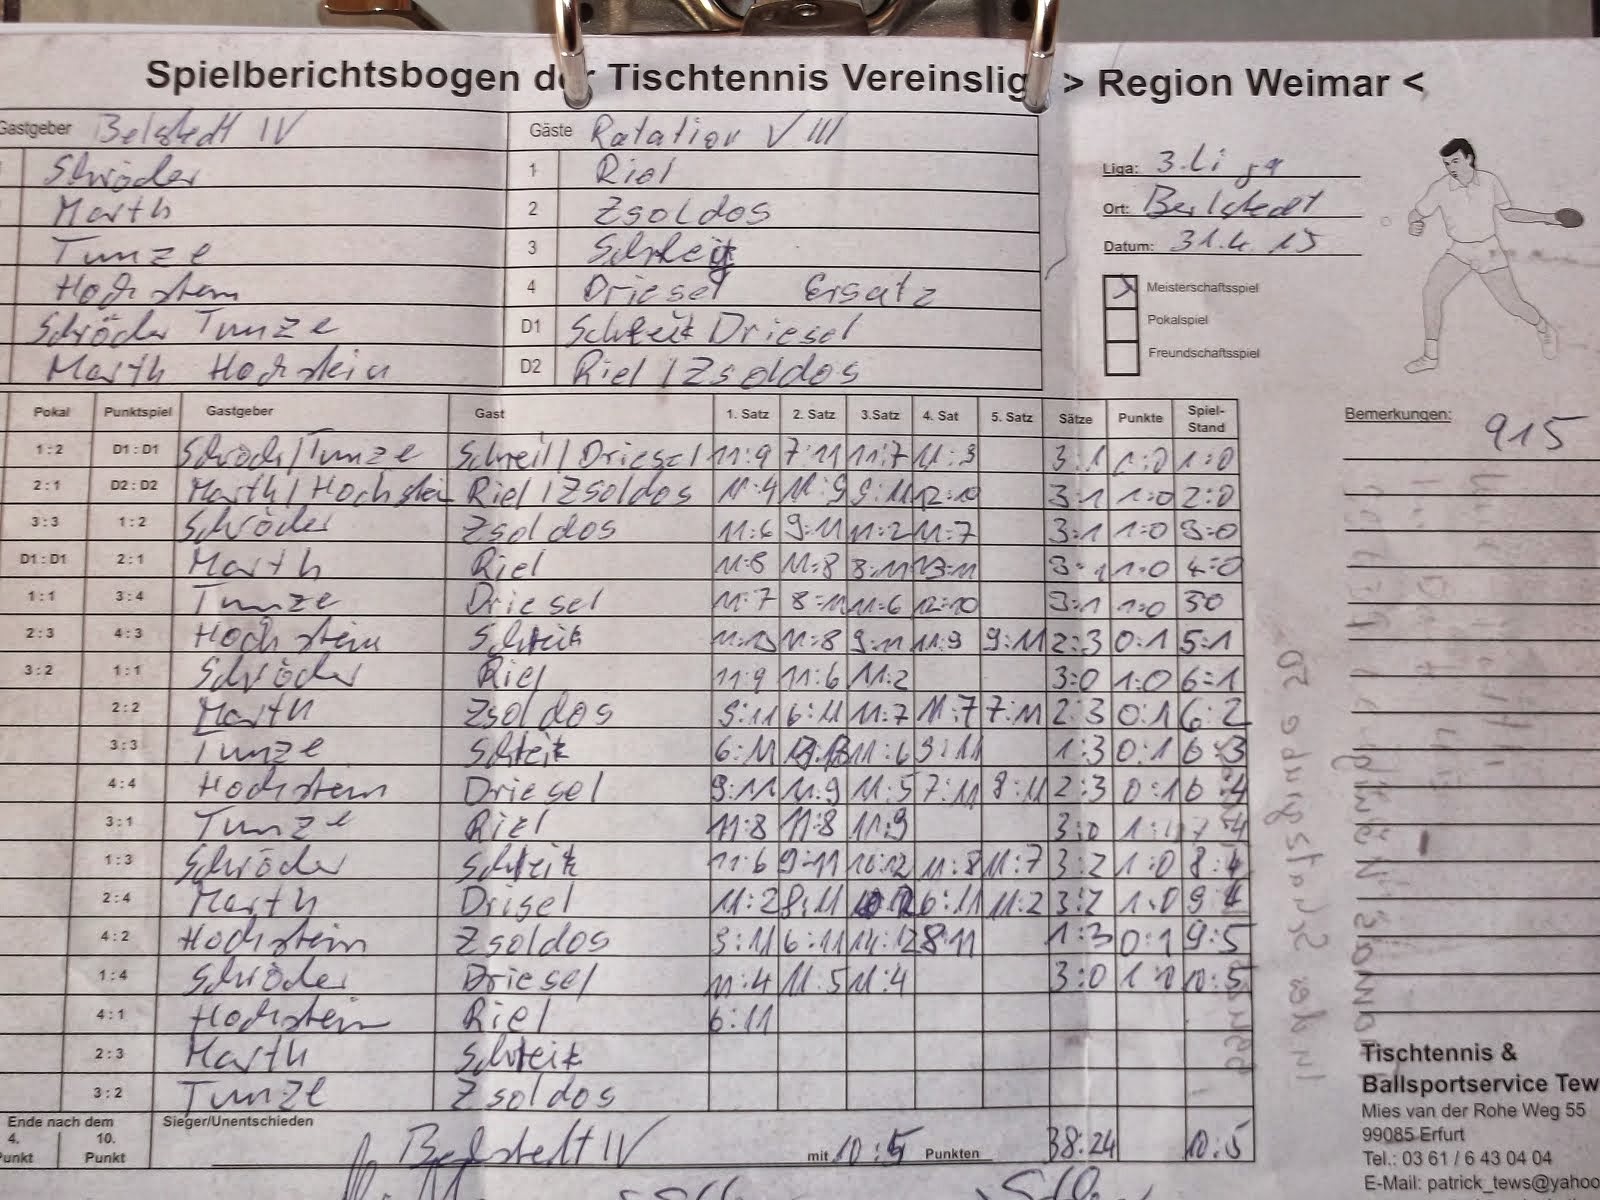 Spielberichtsbogen der Tischtennis Vereinslig > Region Weimar <
Gastgeber Belstedt IV Gäste Rotation VIII
Schröder 1 Riel
Marth 2 Zsoldos
Tunze 3 Schleit
Hochstein 4 Driesel Ersatz
Schröder Tunze D1 Schleit Driesel
Marth Hochstein D2 Riel / Zsoldos
Liga: 3. Liga
Ort: Berlstedt
Datum: 31.4.15
Meisterschaftsspiel
Pokalspiel
Freundschaftsspiel
Bemerkungen: 915
Pokal Punktspiel Gastgeber Gast 1. Satz 2. Satz 3.Satz 4. Sat 5. Satz Sätze Punkte Spiel-Stand
1:2 D1:D1 Schröd/Tunze Schreil/Driesel 11:9 7:11 11:7 11:3 3:1 1:0 1:0
2:1 D2:D2 Marth/Hochstein Riel/Zsoldos 11:4 11:9 9:11 12:10 3:1 1:0 2:0
3:3 1:2 Schröder Zsoldos 11:6 9:11 11:2 11:7 3:1 1:0 3:0
D1:D1 2:1 Marth Riel 11:8 11:8 8:11 13:11 3:1 1:0 4:0
1:1 3:4 Tunze Driesel 11:7 8:11 11:6 12:10 3:1 1:0 50
2:3 4:3 Hochstein Schleit 11:8 9:11 11:9 9:11 2:3 0:1 5:1
3:2 1:1 Schröder Riel 11:9 11:6 11:2 3:0 1:0 6:1
2:2 Marth Zsoldos 9:11 6:11 11:7 11:7 7:11 2:3 0:1 6:2
3:3 Tunze Schleit 6:11 11:6 9:11 1:3 0:1 6:3
4:4 Hochstein Driesel 9:11 11:9 11:5 7:11 8:11 2:3 0:1 6:4
3:1 Tunze Riel 11:8 11:8 11:9 3:0 7:4
1:3 Schröder Schleit 11:6 9:11 10:12 11:8 11:7 3:2 1:0 8:4
2:4 Marth Drisel 11:2 8:11 6:11 11:2 3:2 1:0 9:4
4:2 Hochstein Zsoldos 3:11 6:11 14:12 8:11 1:3 0:1 9:5
1:4 Schröder Driesel 11:4 11:5 11:4 3:0 1:0 10:5
4:1 Hochstein Riel 6:11
2:3 Marth Schleit
3:2 Tunze Zsoldos
Ende nach dem Sieger/Unentschieden
4. 10.
Punkt Punkt Belstedt IV mit 10:5 Punkten 38:24 10:5
Tischtennis &
Ballsportservice Tew
Mies van der Rohe Weg 55
99085 Erfurt
Tel.: 03 61 / 6 43 04 04
E-Mail: patrick_tews@yahoo